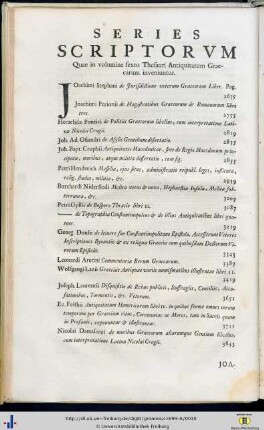 SERIES
SCRIPTORVM
Quæ in volumine sexto Thesauri Antiquitatum Græ-
carum inveniuntur.
Joachimi Stephani de Jurisdictione veterum Græcorum Liber. Pag.
2675
Joachimi Perionii de Magistratibus Græcorum & Romanorum libri
tres.
2753
Heraclidæ Pontici de Politiis Græcorum libellus, cum interpretatione Lati-
na Nicolai Cragii. 2819
Joh. Ad. Osiandri de Asylis Gentilium dissertatio. 2835
Joh. Bapt. Crophii Antiquitates Macedonicæ, sive de Regio Macedonum prin-
cipatu, moribus, atque militia dissertatio, cum fig. 2855
Petri Hendreich Massilia, ejus situs, administratio reipubl. leges, instituta,
relig. studia, militia, &c. 2949
Burchardi Niderstedt Malta vetus & nova, Hephæstia Insula, Melita sub-
terranea, &c. 3009
Petri Gyllii de Bosporo Thracio libri III. 3087
—— de Topographia Constantinopoleos & de illius Antiquitatibus libri qua-
tuor. 3219
Georg. Dousæ de Itinere suo Constantinopolitano Epistola. Accesserunt Veteres
Inscriptiones Byzantio & ex reliqua Græcia cum quibusdam Doctorum Vi-
rorum Epistolis. 3343
Leonardi Aretini Commentaria Rerum Græcarum. 3389
Wolfgangi Lazii Græciæ Antiquæ variis numismatibus illustratæ libri II.
3429
Joseph. Laurentii Dispositio de Rebus publicis, Suffragiis, Conciliis, Accu-
sationibus, Tormentis, &c. Veterum. 3651
Ev. Feithii Antiquitatum Homericarum libri iv. in quibus ferme omnes rerum
tangentur per Græciam ritus, Ceremoniæ ac Mores, tam in Sacris quam
in Profanis, exponuntur & illustrantur. 3711
Nicolai Damasceni de moribus Græcorum aliarumque Gentium Libellus,
cum interpretatione Latina Nicolai Cragii. 3843
JOA-